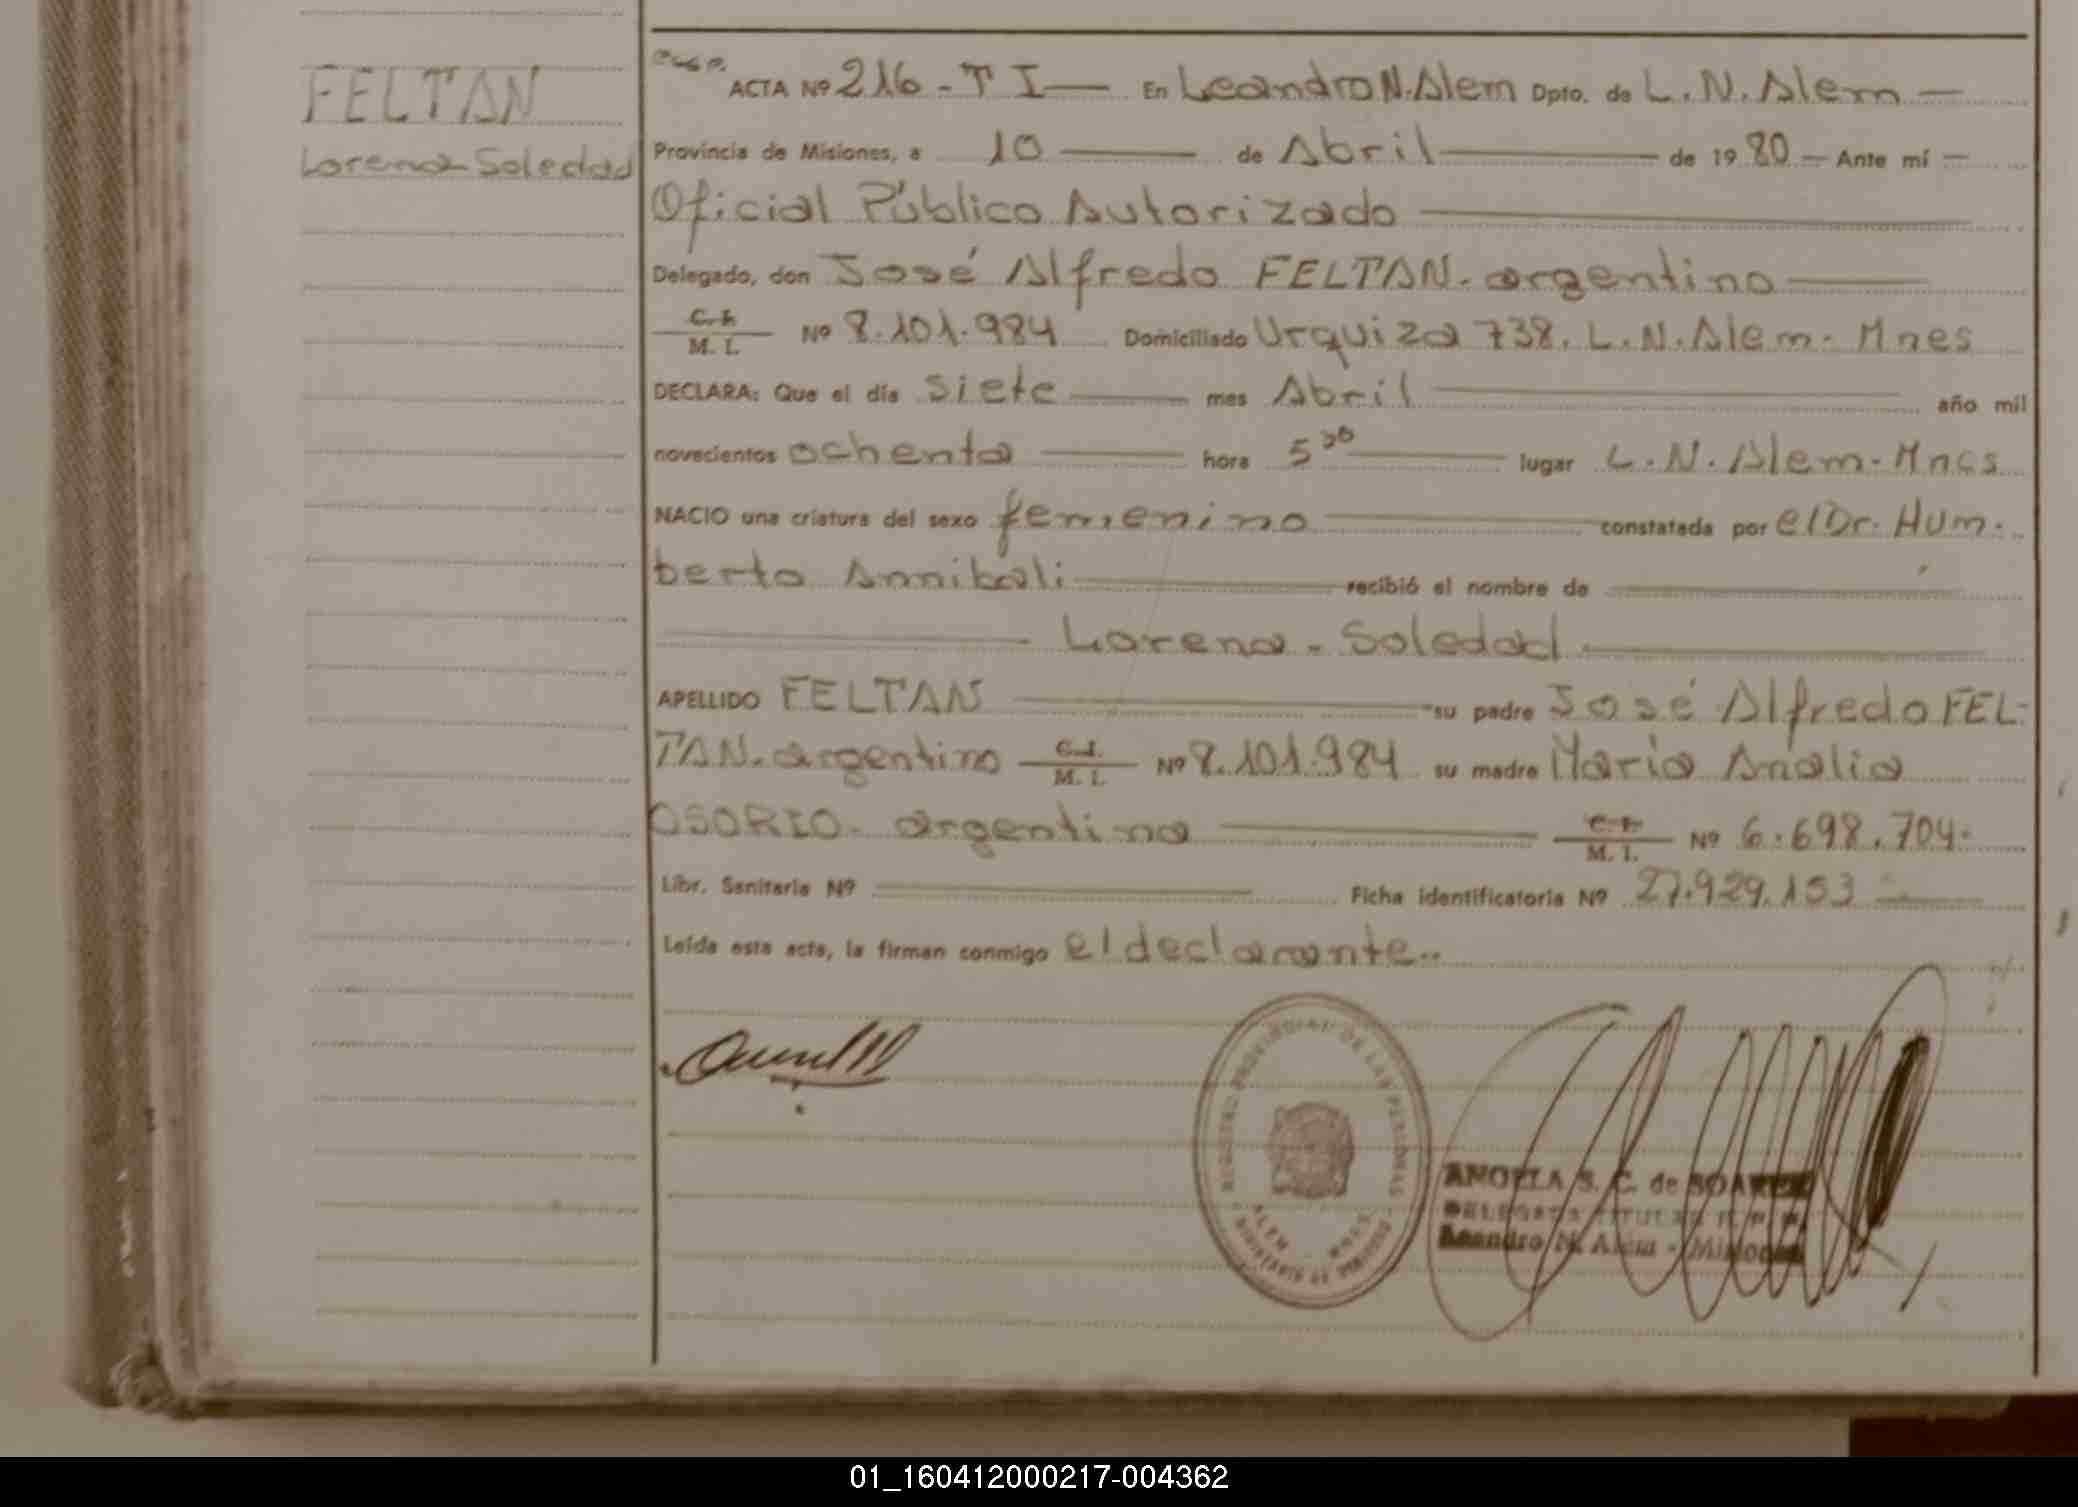 FELTAN
Lorena Soledad
ACTA Nº 216 - T I — En Leandro N. Alem Dpto. de L. N. Alem —
Provincia de Misiones, a 10 — de Abril — de 1980 — Ante mí —
Oficial Público Autorizado
Delegado, don José Alfredo FELTAN. argentino
C. I. / M. I. Nº 8.101.984 Domiciliado Urquiza 738. L. N. Alem - Mnes
DECLARA: Que el día siete — mes Abril — año mil
novecientos ochenta — hora 5 30 — lugar L. N. Alem - Mnes
NACIO una criatura del sexo femenino — constatada por el Dr. Hum-
berto Annibali — recibió el nombre de
Lorena - Soledad
APELLIDO FELTAN — su padre José Alfredo FEL-
TAN. argentino C. I. / M. I. Nº 8.101.984 su madre María Analia
OSORIO - argentina — C. I. / M. I. Nº 6.698.704-
Libr. Sanitaria Nº — Ficha identificatoria Nº 27.929.153
Leída esta acta, la firman conmigo el declarante..
REGISTRO PROVINCIAL DE LAS PERSONAS
ALEM - MNES
ANGELA S. C. de SOAREZ
DELEGADA TITULAR R. P. P.
Leandro N. Alem - Misiones
01_160412000217-004362